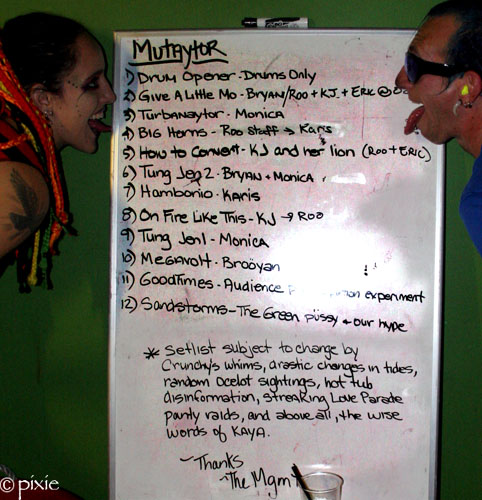 MUTAYTOR
1) Drum Opener - Drums Only
2) Give A Little Mo - Bryan/Roo + KJ + Eric @
3) Turbanaytor - Monica
4) Big Horns - Roo Staff → Karis
5) How to Convert - KJ and her lion (Roo + Eric)
6) Tung Jen 2 - Bryan + Monica
7) Hambonio - Karis
8) On Fire Like This - KJ → Roo
9) Tung Jen 1 - Monica
10) Megavolt - Broöyan
11) GoodTimes - Audience experiment
12) Sandstorms - The Green püssy + our hype
* Setlist subject to change by
Crunchy's whims, drastic changes in tides,
random Ocelot sightings, hot tub
disinformation, streaking Love Parade
panty raids, and above all, the wise
words of KAYA.
~Thanks
~The Mgmt
© pixie